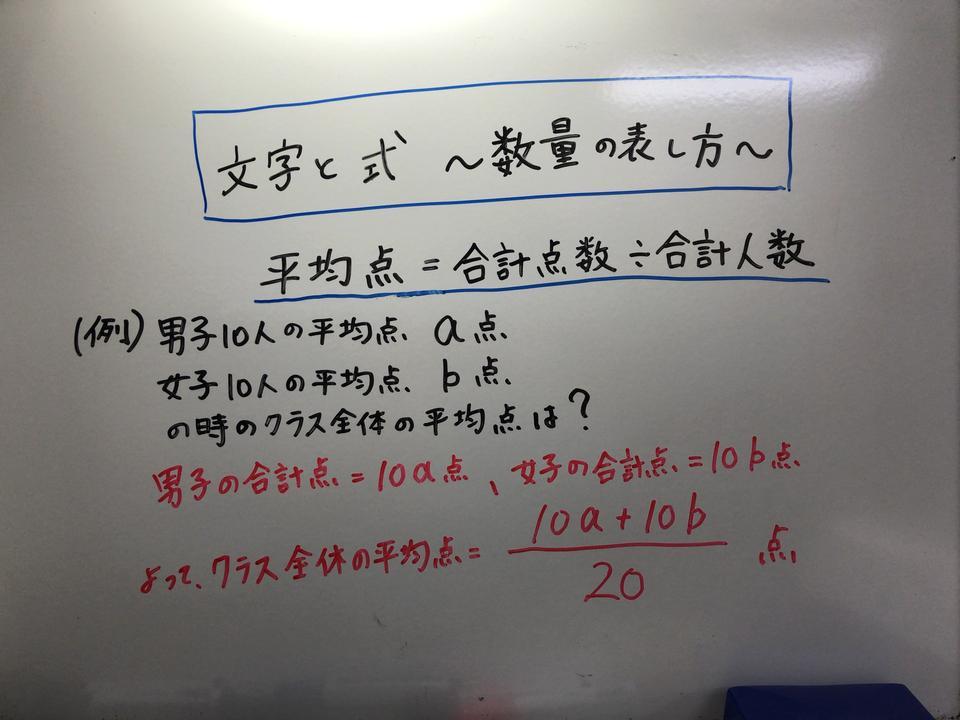 文字と式 ～数量の表し方～
平均点=合計点数÷合計人数
(例)男子10人の平均点 a点
女子10人の平均点 b点
の時のクラス全体の平均点は?
男子の合計点=10a点、女子の合計点=10b点
よって、クラス全体の平均点= 10a+10b / 20 点